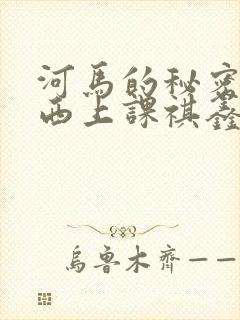 河馬的秘密
西上課祺鑫
烏魯木齊——